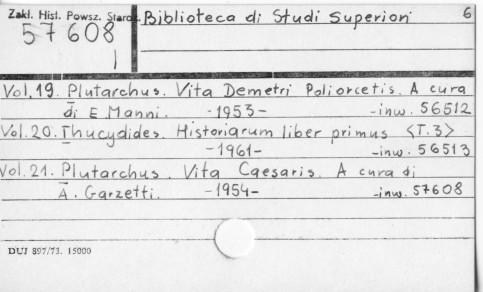 Zakl. Hist. Powsz. Staroż. Biblioteca di Studi Superiori 6
57608
I
Vol. 19. Plutarchus. Vita Demetri Poliorcetis. A cura
di E Manni. -1953- -inw. 56512
Vol. 20. Thucydides. Historiarum liber primus <T.3>
-1961- -inw. 56513
Vol. 21. Plutarchus. Vita Caesaris. A cura di
A. Garzetti. -1954- -inw. 57608
DUJ 897/73. 15000